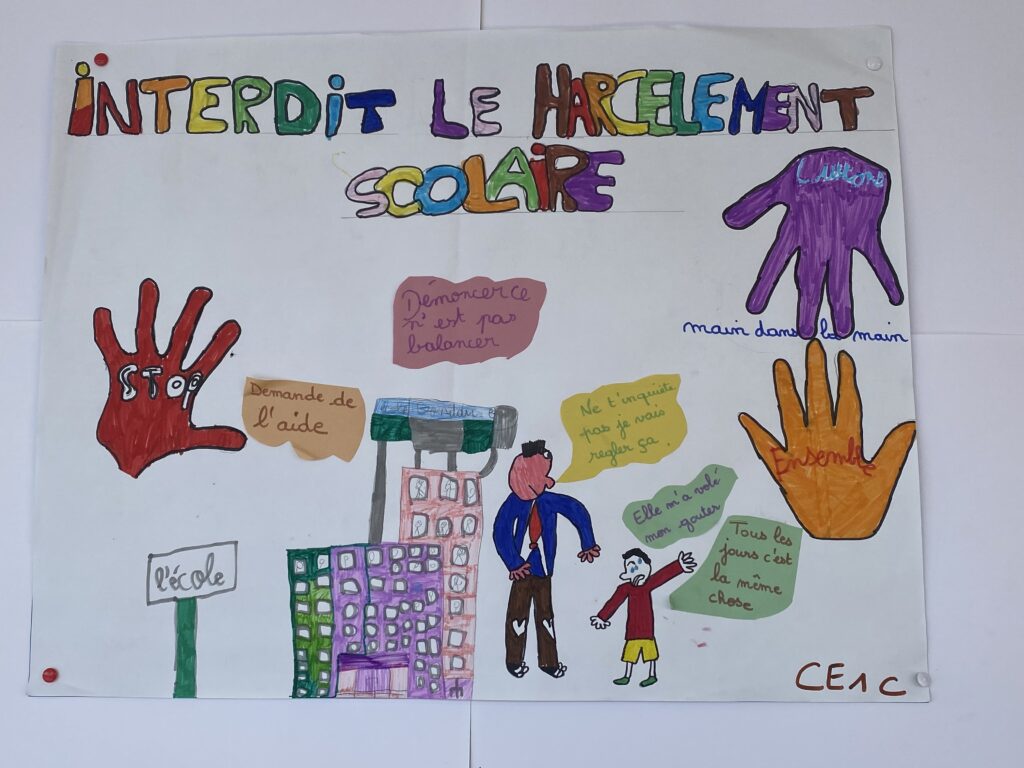 INTERDIT LE HARCELEMENT
SCOLAIRE
main dans la main
STOP
Démoncer ce
n'est pas
balancer
Demande de
l'aide
Ne t'inquiète
pas je vais
regler ça.
Ensemble
Elle m'a volé
mon gouter
Tous les
jours c'est
la même
chose
l'école
CE1C